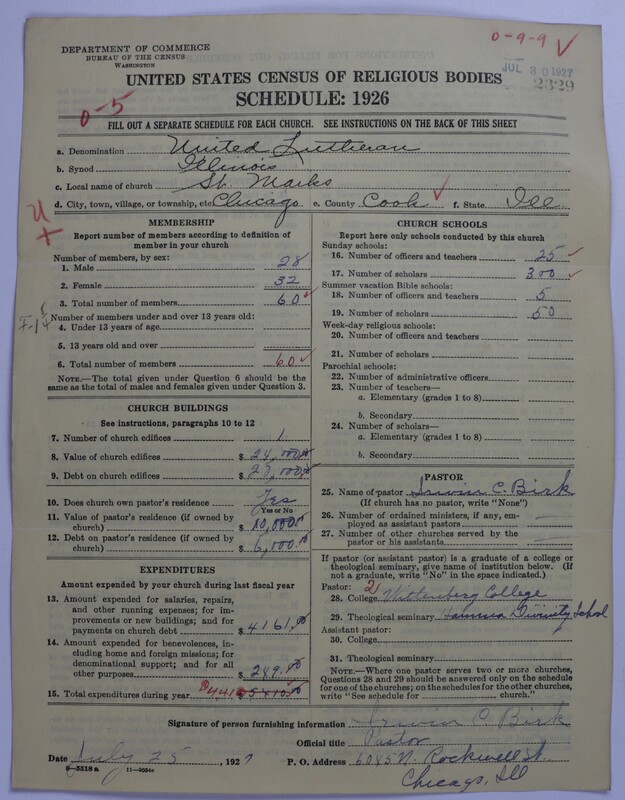 0-9-9 ✓
DEPARTMENT OF COMMERCE
BUREAU OF THE CENSUS
WASHINGTON
JUL 30 1927
2329
UNITED STATES CENSUS OF RELIGIOUS BODIES
SCHEDULE: 1926
0-5
FILL OUT A SEPARATE SCHEDULE FOR EACH CHURCH. SEE INSTRUCTIONS ON THE BACK OF THIS SHEET
a. Denomination United Lutheran
b. Synod Illinois
c. Local name of church St. Marks
d. City, town, village, or township, etc. Chicago e. County Cook ✓ f. State Ill
MEMBERSHIP
Report number of members according to definition of
member in your church
Number of members, by sex:
1. Male 28
2. Female 32
3. Total number of members 60 ✓
Number of members under and over 13 years old:
4. Under 13 years of age
5. 13 years old and over
6. Total number of members 60 ✓
NOTE.—The total given under Question 6 should be the
same as the total of males and females given under Question 3.
CHURCH BUILDINGS
See instructions, paragraphs 10 to 12
7. Number of church edifices 1
8. Value of church edifices $ 24,000.00
9. Debt on church edifices $ 27,000.00
10. Does church own pastor's residence Yes
Yes or No
11. Value of pastor's residence (if owned by
church) $ 10,000.00
12. Debt on pastor's residence (if owned by
church) $ 6,000.00
EXPENDITURES
Amount expended by your church during last fiscal year
13. Amount expended for salaries, repairs,
and other running expenses; for im-
provements or new buildings; and for
payments on church debt $ 4161.00
14. Amount expended for benevolences, in-
cluding home and foreign missions; for
denominational support; and for all
other purposes $ 249.00
15. Total expenditures during year
CHURCH SCHOOLS
Report here only schools conducted by this church
Sunday schools:
16. Number of officers and teachers 25 ✓
17. Number of scholars 300 ✓
Summer vacation Bible schools:
18. Number of officers and teachers 5
19. Number of scholars 50
Week-day religious schools:
20. Number of officers and teachers
21. Number of scholars
Parochial schools:
22. Number of administrative officers
23. Number of teachers—
a. Elementary (grades 1 to 8)
b. Secondary
24. Number of scholars—
a. Elementary (grades 1 to 8)
b. Secondary
PASTOR
25. Name of pastor Irwin C. Birk
(If church has no pastor, write "None")
26. Number of ordained ministers, if any, em-
ployed as assistant pastors
27. Number of other churches served by the
pastor or his assistants
If pastor (or assistant pastor) is a graduate of a college or
theological seminary, give name of institution below. (If
not a graduate, write "No" in the space indicated.)
Pastor: 2
28. College Wittenberg College
29. Theological seminary Hamma Divinity School
Assistant pastor:
30. College
31. Theological seminary
NOTE.—Where one pastor serves two or more churches,
Questions 28 and 29 should be answered only on the schedule
for one of the churches; on the schedules for the other churches,
write "See schedule for church."
Signature of person furnishing information Irwin C. Birk
Official title Pastor
Date July 25, 1927 P. O. Address 6045 N. Rockwell St.
8—5318 a 11—9054
Chicago, Ill